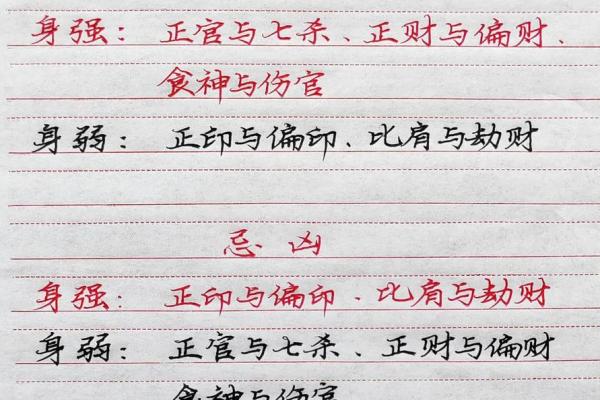 身强：正官与七杀、正财与偏财、
食神与伤官
身弱：正印与偏印、比肩与劫财
忌凶
身强：正印与偏印、比肩与劫财
身弱：正官与七杀、正财与偏财
食神与伤官